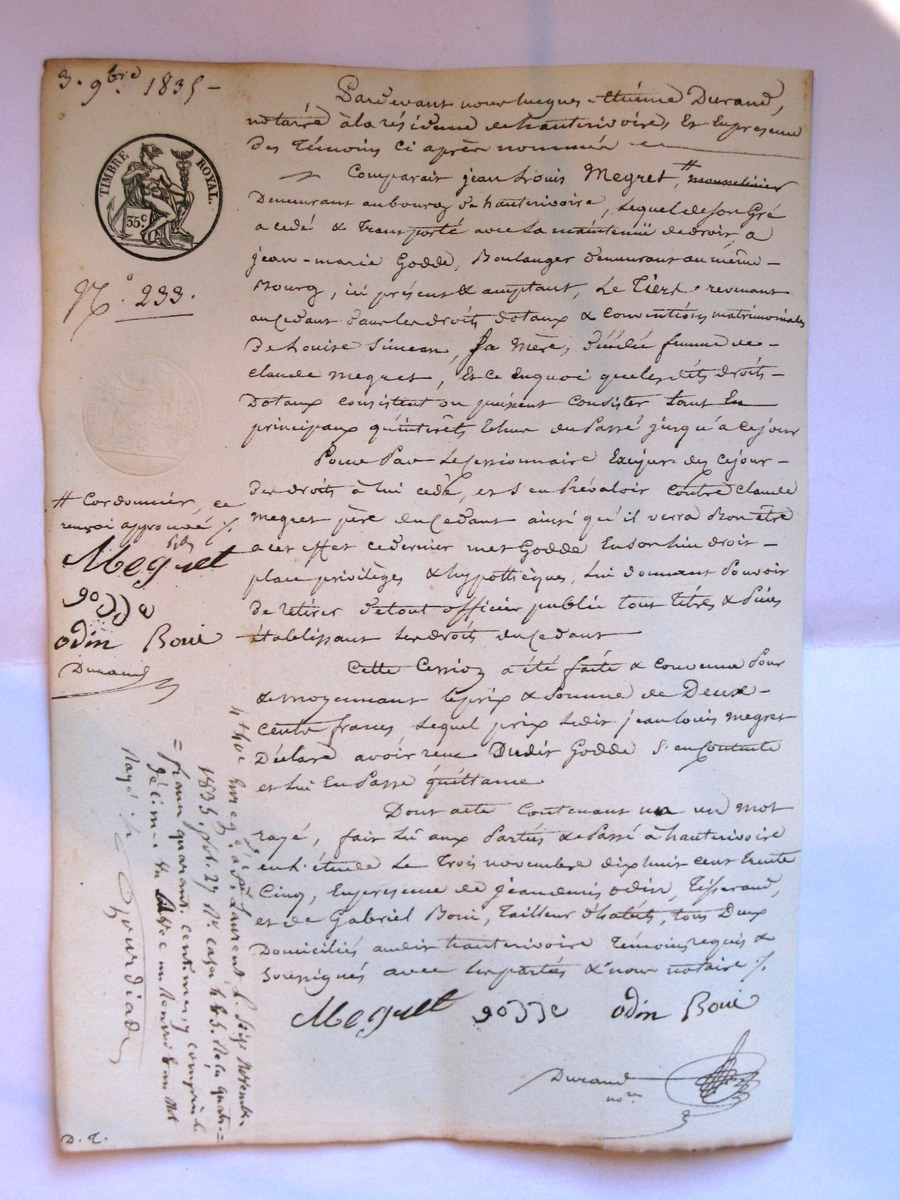 3. 9bre 1835 -
TIMBRE ROYAL.
35 c.
N° 233.
Pardevant nous Jacques Etienne Durand,
notaire à la résidence de hauterivoire, et En presence
Des Témoins ci après nommés
Comparait jean Louis Megret, #
Demeurant au bourg de hauterivoire, Lequel de son Gré
a cédé & Transporté avec La maintenue de droit, a
jean-marie Godde, Boulanger demeurant au même
Bourg, ici présent & acceptant, Le Tiers revenant
au Cedant dans les droits dotaux & conventions matrimoniales
De Louise Simean, Sa Mère, décédée femme de
claude megret, Et Ce Enquoi que les dits droits
Dotaux consistent ou puissent Consister tant En
principaux qu'intérêts Echus du Passé jusqu'à ce jour
Pour Par Le Cessionnaire Exiger dez ce jour
des droits à lui cédés, et s'en Prévaloir Contre Claude
Megret père du Cedant ainsi qu'il verra Bon être
a cet effet ce dernier met Godde En son Lieu droit
place privilèges & hypothèques, Lui donnant Pouvoir
De retirer de tout officier public tous Titres & Pièces
établissant les droits du Cedant
Cette Cession a été faite & convenue Pour
& moyennant le prix & Somme de Deux
Cents francs, lequel prix Ledit jean louis Megret
Déclare avoir reçu Dudit Godde S'en Contente
et Lui En Passe quittance
Dont acte Contenant un mot
rayé, fait Lû aux Parties & Passé à hauterivoire
en l'étude Le Trois novembre dix huit cent trente
Cinq, En presence de jean denis odin, Tisserand,
et de Gabriel Boui, Tailleur d'habits, tous Deux
Domiciliés audit hauterivoire Témoins requis &
Soussignés avec les parties & nous notaire ./.
Megret godde odin Boui
Durand
nore
# Cordonnier, ce
renvoi approuvé ./.
Megret
godde
odin Boui
Durand
Enregé à St Laurent le Seize Novembre
1835. fol. 27 Ro case 4 & 5. Reçu quatre
francs quarante centimes y compris le
décime avec un Renvoi & un Mot
Rayé ./.
D. T.